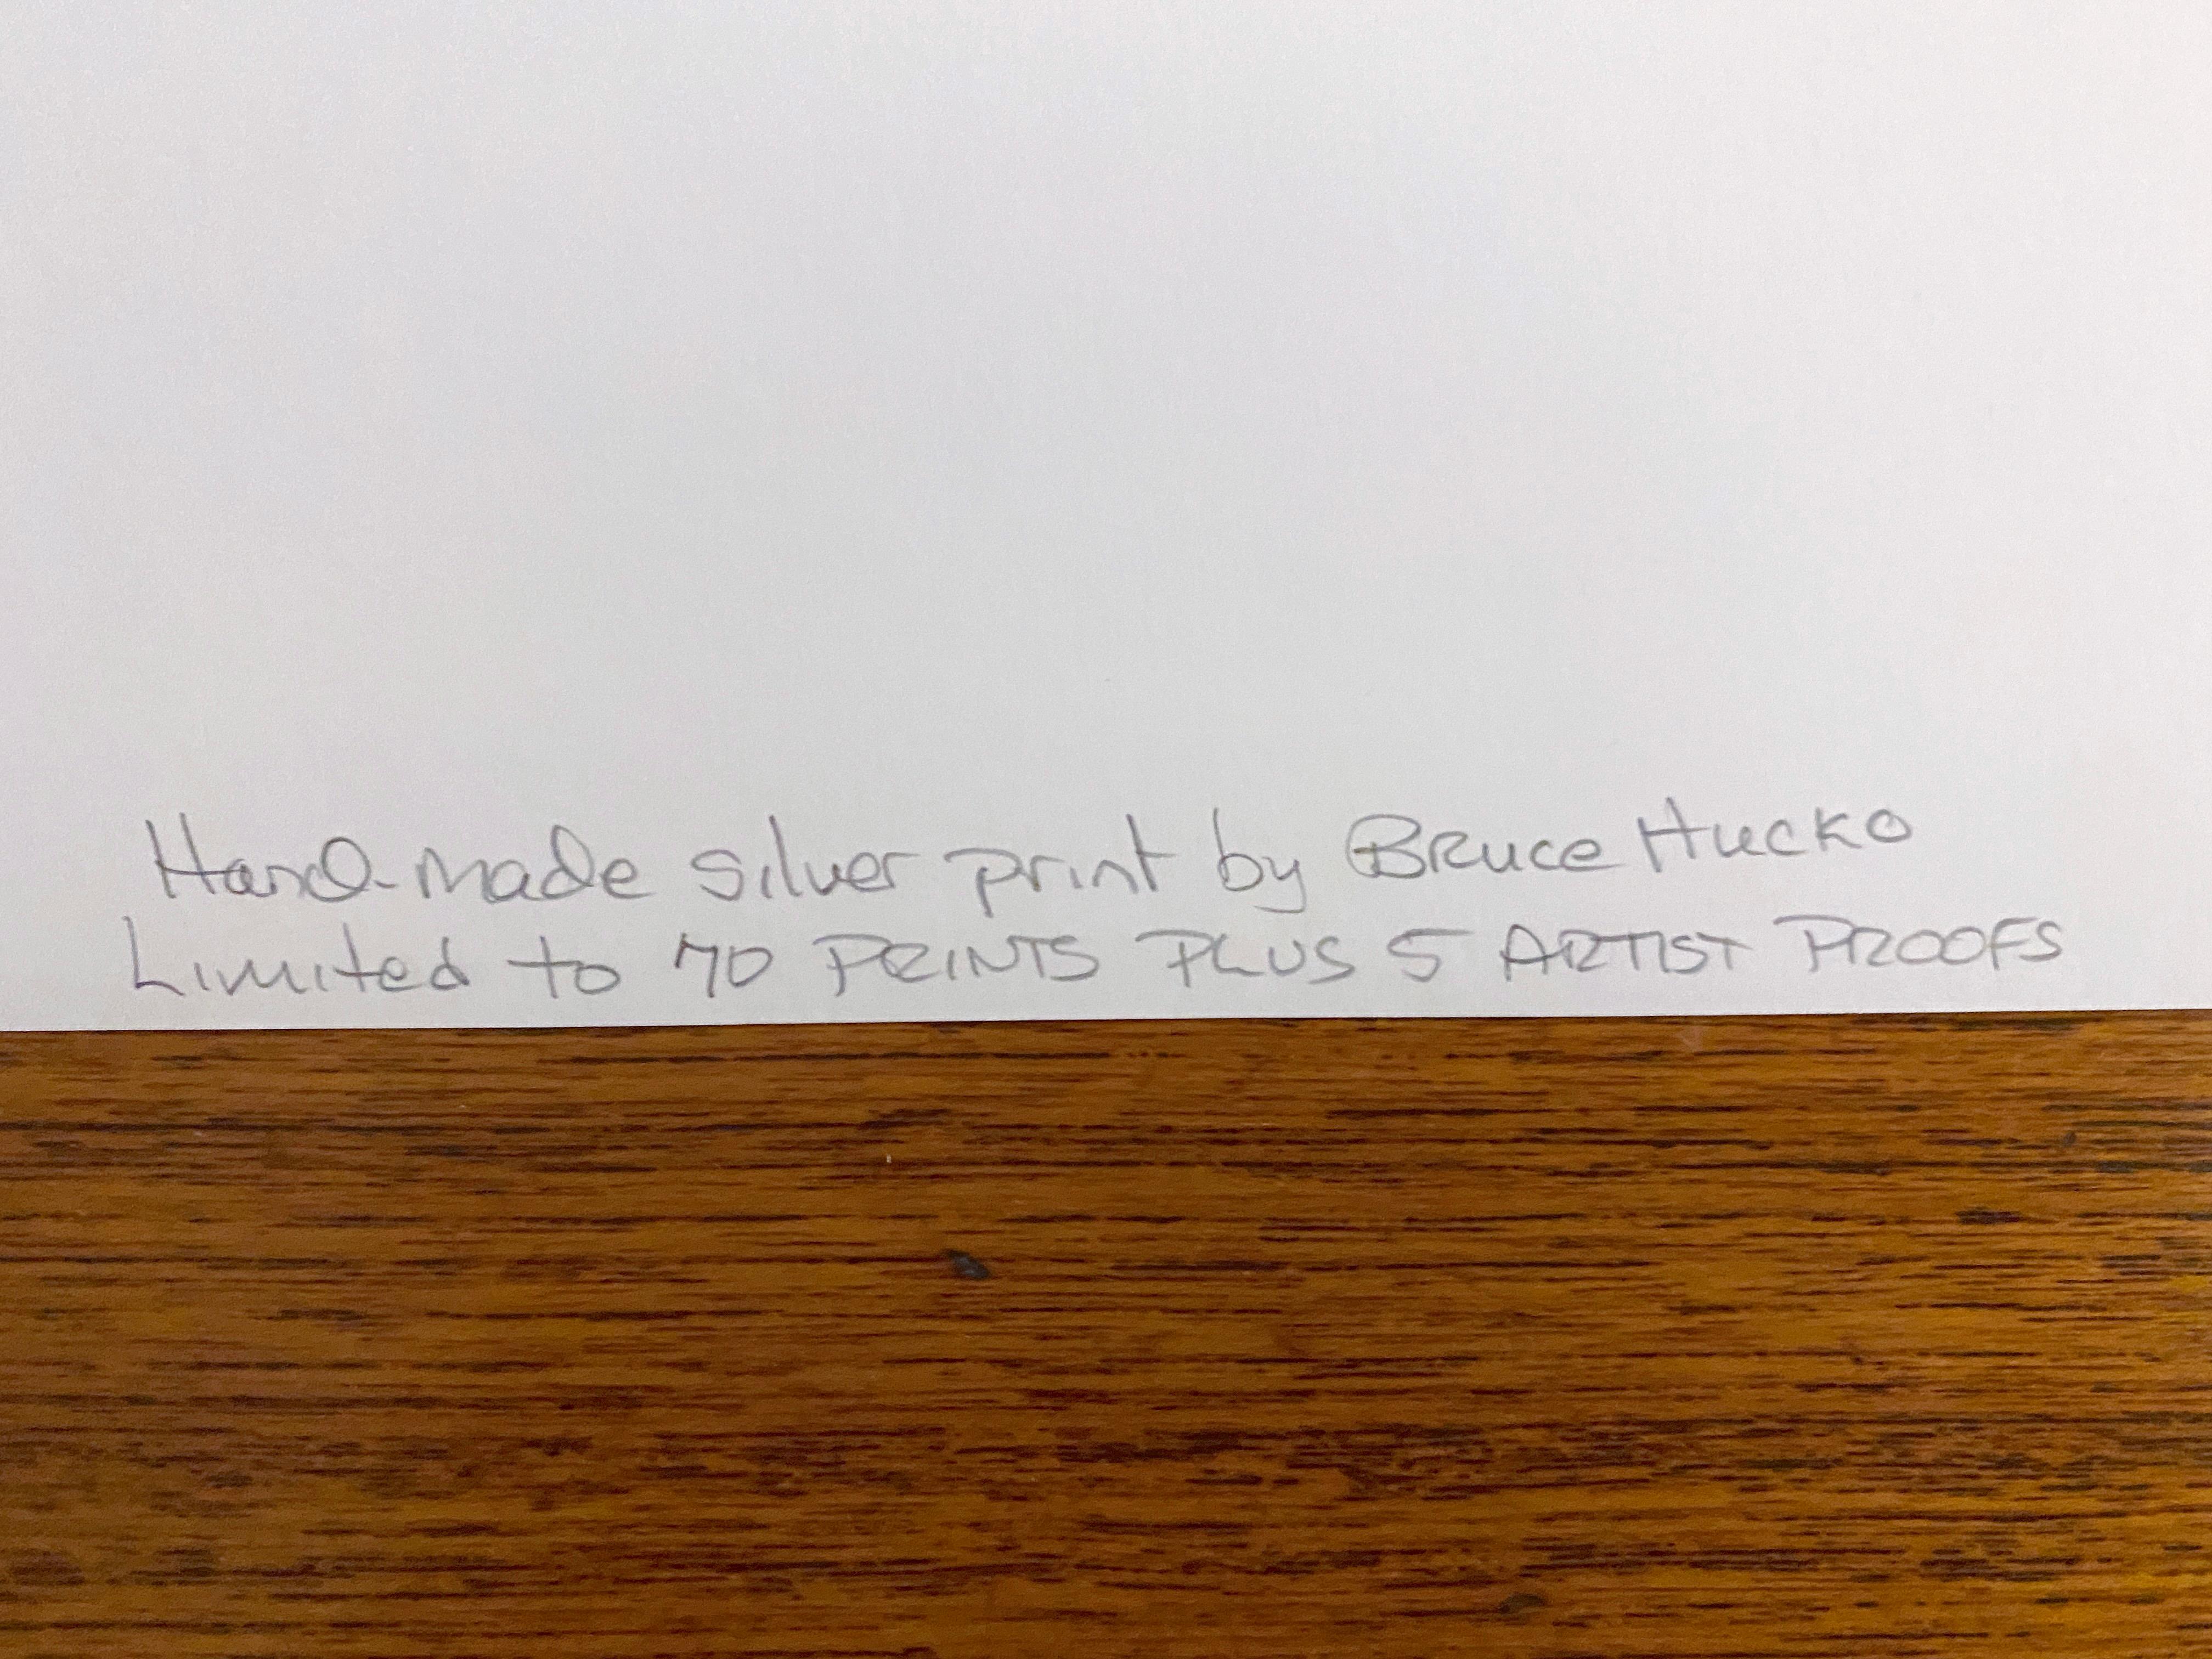 Hand-made silver print by Bruce Hucko
Limited to 70 PRINTS PLUS 5 ARTIST PROOFS